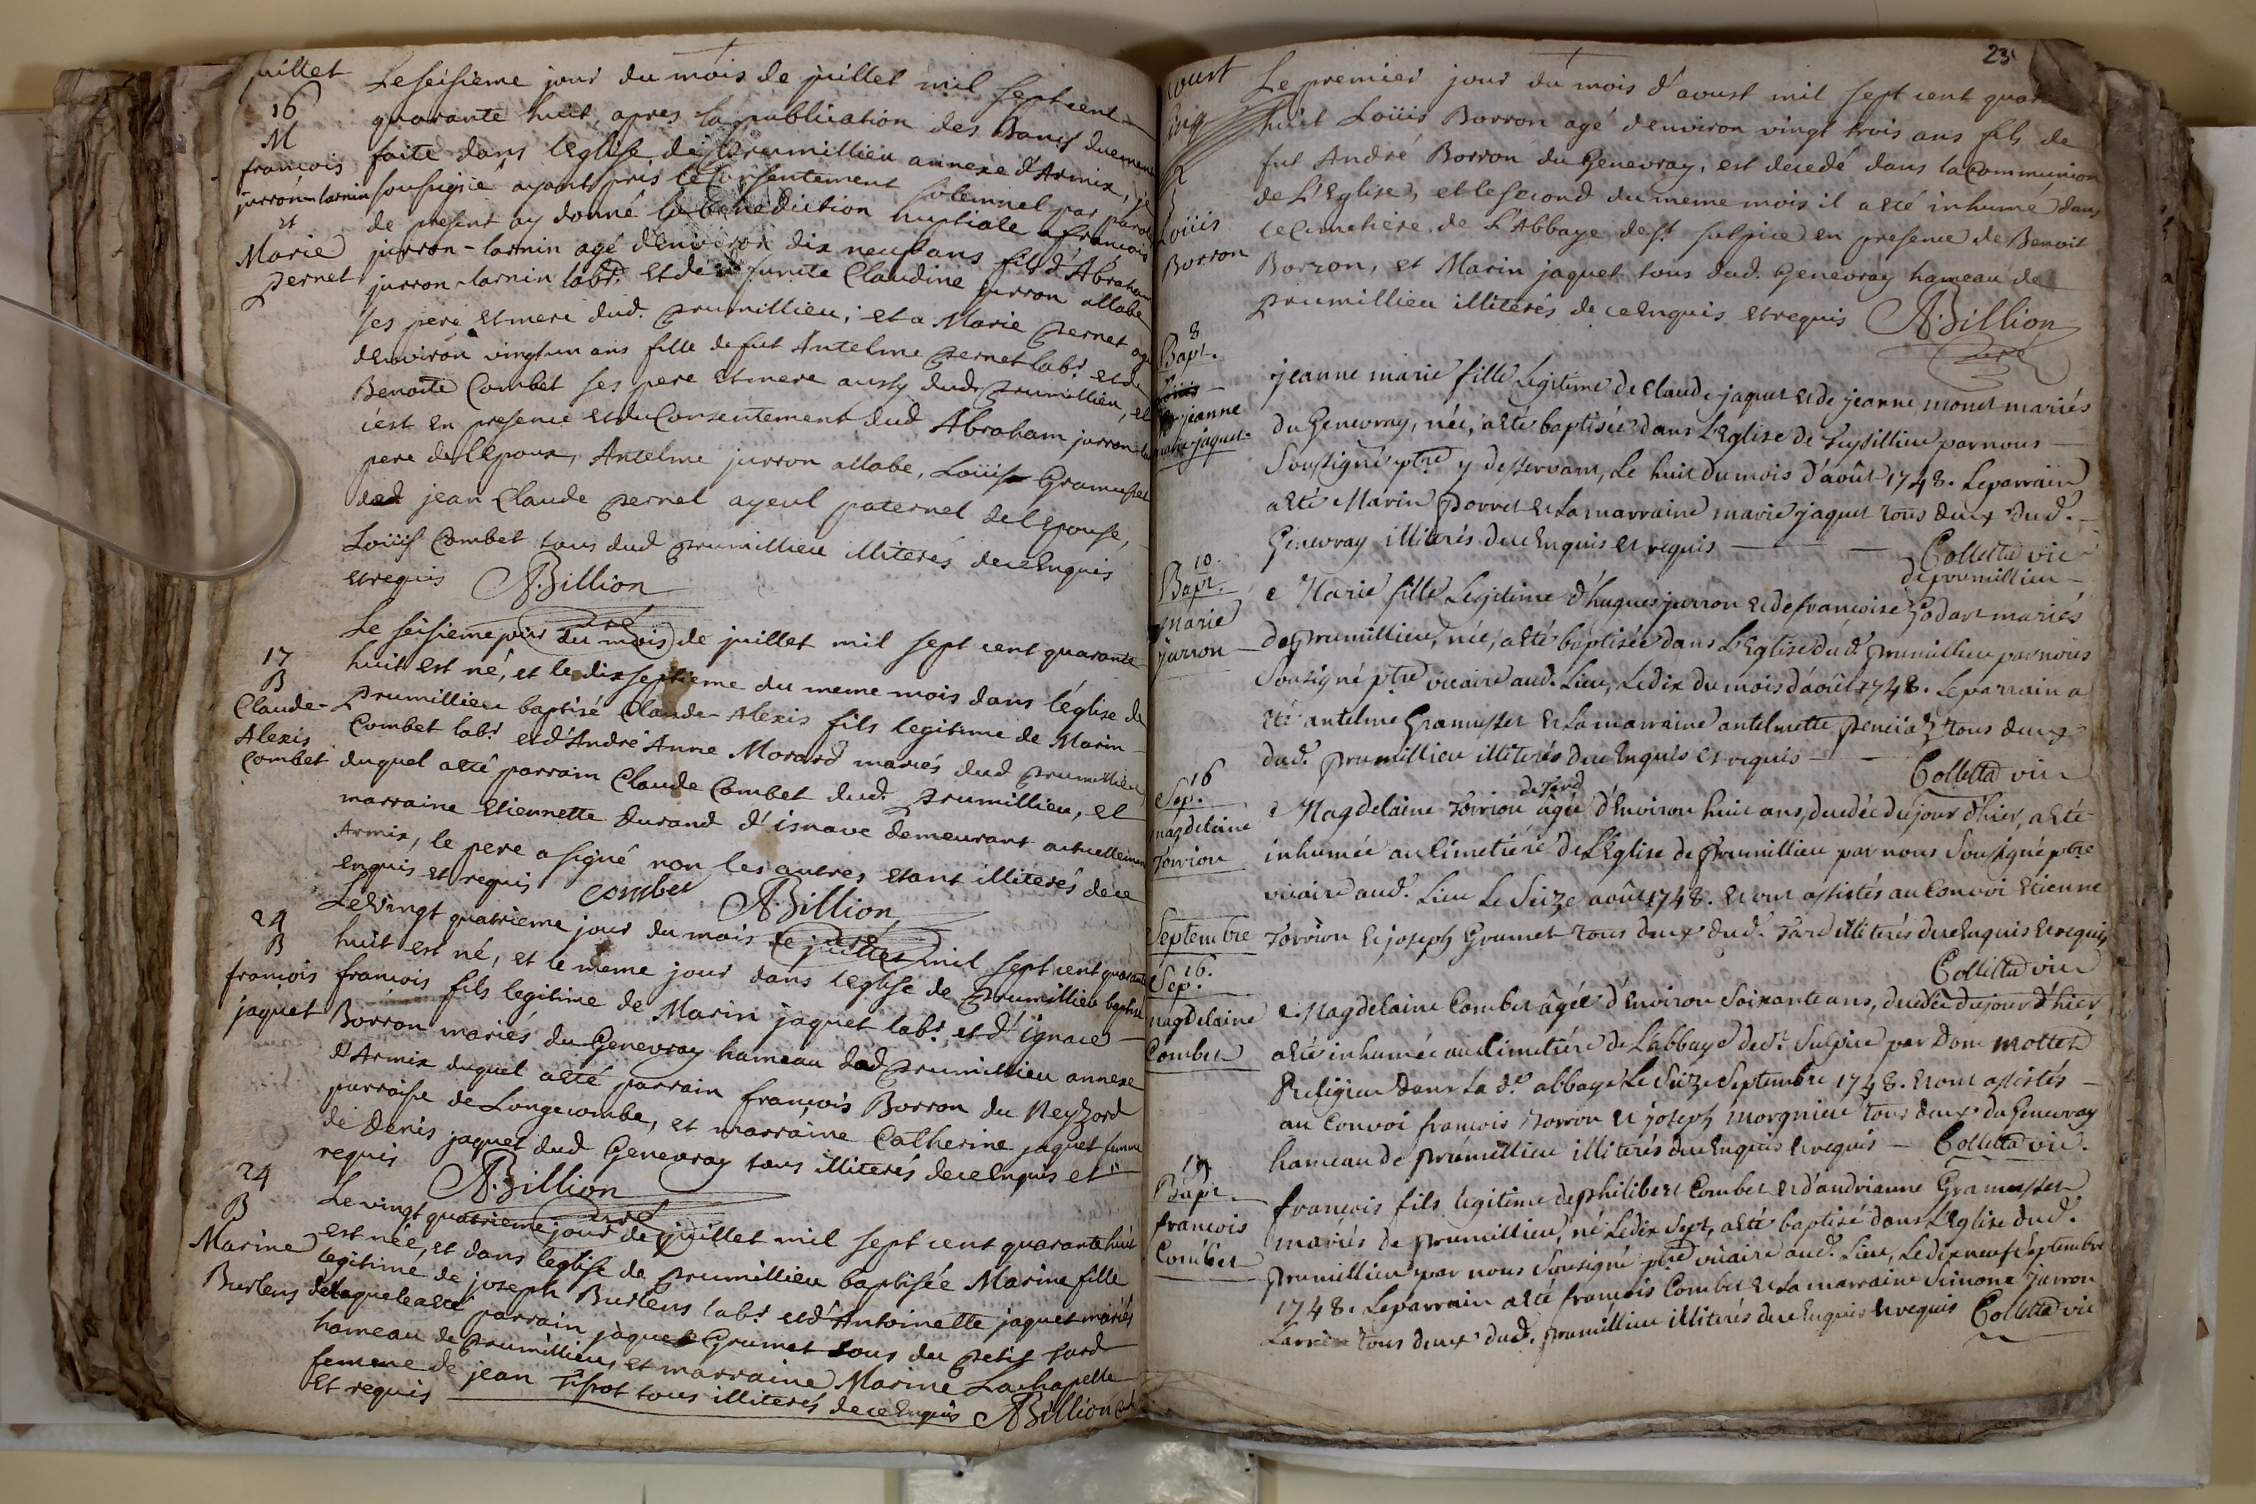 juillet
16
M
françois
jurron-larnin
et
Marie
Pernet
Le seisieme jour du mois de juillet mil sept cent
quarante huit, apres la publication des Bancs duement
faite dans l'Eglise de Prumillieu annexe d'Armix, je
soussigné ayant pris le Consentement solemnel par parole
de present ay donné la benediction nuptiale a françois
jurron-larnin agé d'environ dix neuf ans fils d'Abraham
jurron-larnin labr. et de defunte Claudine jurron allabe
ses pere et mere dud. Prumillieu; et a Marie Pernet agée
d'environ vingt un ans fille de fut Antelme Pernet labr. et de
Benoite Combet ses pere et mere aussy dud Prumillieu, et
c'est en presence et du Consentement dud Abraham jurron-lar
pere de l'Epoux, Antelme jurron allabe, Loüis Gramusset
dud jean Claude Pernet ayeul paternel de l'Epouse,
Loüis Combet tous dud Prumillieu illiterés de ce Enquis
et requis A. Billion
curé
17
B
Claude-
Alexis
Combet
Le seisieme jour du mois de juillet mil sept cent quarante
huit est né, et le dix septieme du meme mois dans l'église de
Prumillieu baptisé Claude-Alexis fils legitime de Marin
Combet labr. et d'André Anne Morard mariés dud Prumillieu,
duquel a eté parrain Claude Combet dud. Prumillieu, et
marraine Etiennette Durand d'isnave demeurant actuellement
Armix, le pere a signé non les autres etant illiterés de ce
enquis et requis combet A. Billion
curé
24
B
françois
jaquet
Le vingt quatrieme jour du mois de juillet mil sept cent quarante
huit est né, et le meme jour dans l'eglise de Prumillieu baptisé
françois fils legitime de Marin jaquet labr. et d'ignace
Borron mariés du Genevray hameau dud Prumillieu annexe
d'Armix duquel a eté parrain françois Borron du Neyzord
parroisse de Longecombe, et marraine Catherine jaquet femme
de Denis jaquet dud Genevray tous illiterés de ce Enquis et
requis A. Billion
curé
24
B
Marine
Burlens
Le vingt quatrieme jour de juillet mil sept cent quarante huit
est née, et dans l'eglise de Prumillieu baptisée Marine fille
legitime de joseph Burlens labr. et d'Antoinette jaquet mariés
de laquelle a eté parrain jaques Grumet tous du petit tard
hameau de Prumillieu, et marraine Marine Lachapelle
femme de jean Tissot tous illiterés de ce Enquis A Billion curé
et requis
23
aoust
R
S
Loüis
Borron
Le premier jour du mois d'aoust mil sept cent quar
huit Loüis Borron agé d'environ vingt trois ans fils de
fut André Borron du Genevray, est decedé dans la Communion
de L'Eglise, et le second du meme mois il a eté inhumé dans
le cimetiere de L'Abbaye de St. sulpice en presence de Benoit
Borron, et Marin jaquet tous dud. Genevray hameau de
Prumillieu illiterés de ce enquis et requis A. Billion
Curé
8
Bapt.
jeanne
marie jaquet.
jeanne marie fille Legitime de Claude jaquet et de jeanne monet mariés
du Genevray, née, a eté baptisée dans L'Eglise de pujillieu par nous
Soussigné ptre y desservant, Le huit du mois d'août 1748. Le parrain
a eté Marin Porret et La marraine marie jaquet tous deux dud.
Genevray illiterés de ce Enquis et requis Colletta vic
de prumillieu
10.
Bapt.
Marie
jurron
Marie fille Legitime d'hugues jurron et de françoise Godart mariés
de Prumillieu, née, a eté baptisée dans L'Eglise du d. prumillieu par nous
Soussigné ptre vicaire aud. Lieu, Le dix du mois d'août 1748. Le parrain a
eté antelme Gramusset et La marraine antelmette penciaz tous deux
dud. prumillieu illiterés de ce Enquis et requis Colletta vic
16
Sep.
magdelaine
Torrion
du Tard
Magdelaine Torrion âgée d'Environ huit ans, decedée du jour d'hier, a eté
inhumée au Cimetiére de L'Eglise de prumillieu par nous Soussigné ptre
vicaire aud. Lieu Le Seize août 1748. et ont assistés au Convoi Etienne
Torrion et joseph Grumet tous deux dud. Tard illiterés de ce Enquis et requis
Colletta vic
Septembre
16.
Sep.
Magdelaine
Combet
Magdelaine Combet âgée d'Environ Soixante ans, decedée du jour d'hier,
a eté inhumée au Cimetiére de L'abbaye de St. Sulpice par Dom mottet
Religieux dans La de. abbaye Le Seize Septembre 1748. et ont assistés
au Convoi françois Borron et joseph morgnieu tous deux du Genevray
hameau de prumillieu illiterés de ce Enquis et requis Colletta vic.
19
Bapt.
françois
Combet
françois fils legitime de philibert Combet et d'andrianne Gramusset
mariés de prumillieu, né Le dix Sept, a eté baptisé dans L'Eglise dud.
prumillieu par nous Soussigné ptre vicaire aud. Lieu, Le dix neuf Septembre
1748. Le parrain a eté françois Combet et La marraine Simone jurron
Larnin tous deux dud. prumillieu illiterés de ce Enquis et requis Colletta vic